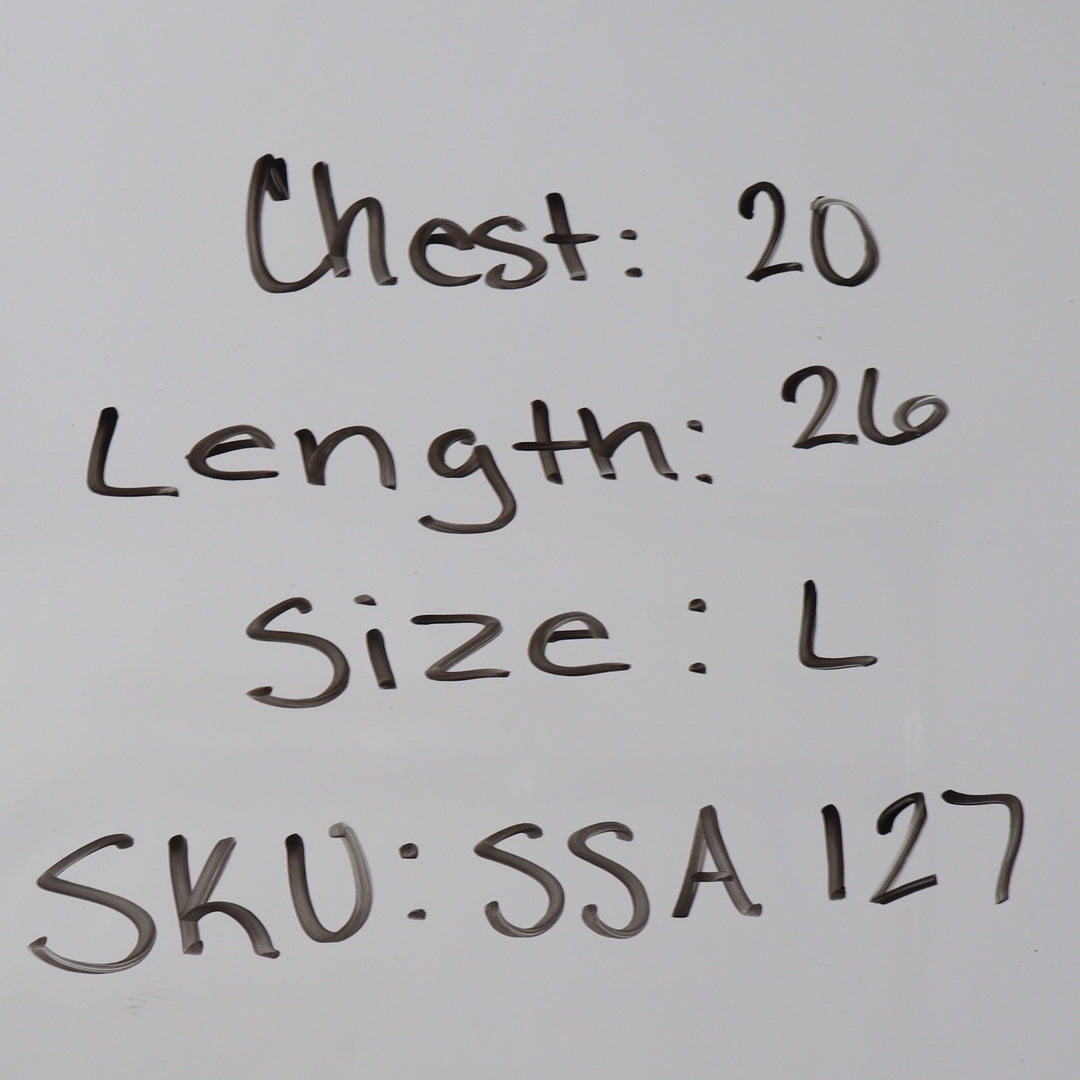 Chest: 20
Length: 26
Size: L
SKU: SSA 127